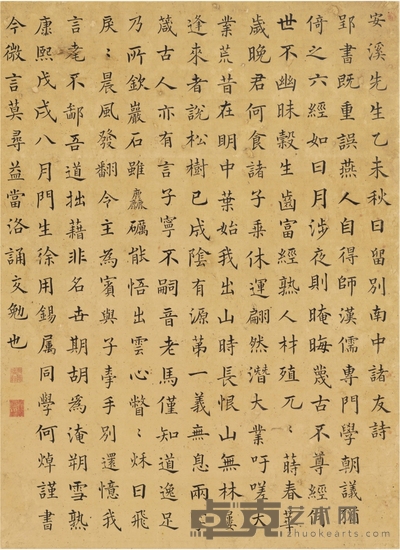 安溪先生乙未秋日留別南中諸友詩
郢書既重誤燕人自得師漢儒專門學朝議
倚之六經如日月涉夜則晻晦幾古不尊經
世不幽昧穀生齒富經熟人材殖兀〻蒋春華
歲晚君何食諸子乗休運翩然潛大業吁嗟大
業荒昔在明中葉始我出山時長恨山無林屢
逢來者說松樹已成陰有源第一義無息兩
箴古人亦有言子寧不嗣音老馬僅知道逸足
乃所欽巖石雖麤礪能悟出雲心瞥〻秌日飛
戾〻晨風發翻今主為賓與子牽手別還憶我
言耄不鄙吾道拙藉非名世期胡為淹朔雪熟
康熙戊戌八月門生徐用錫属同學何焯謹書
今微言莫尋益當洛誦文勉也
卓克艺术网
www.zhuokearts.com